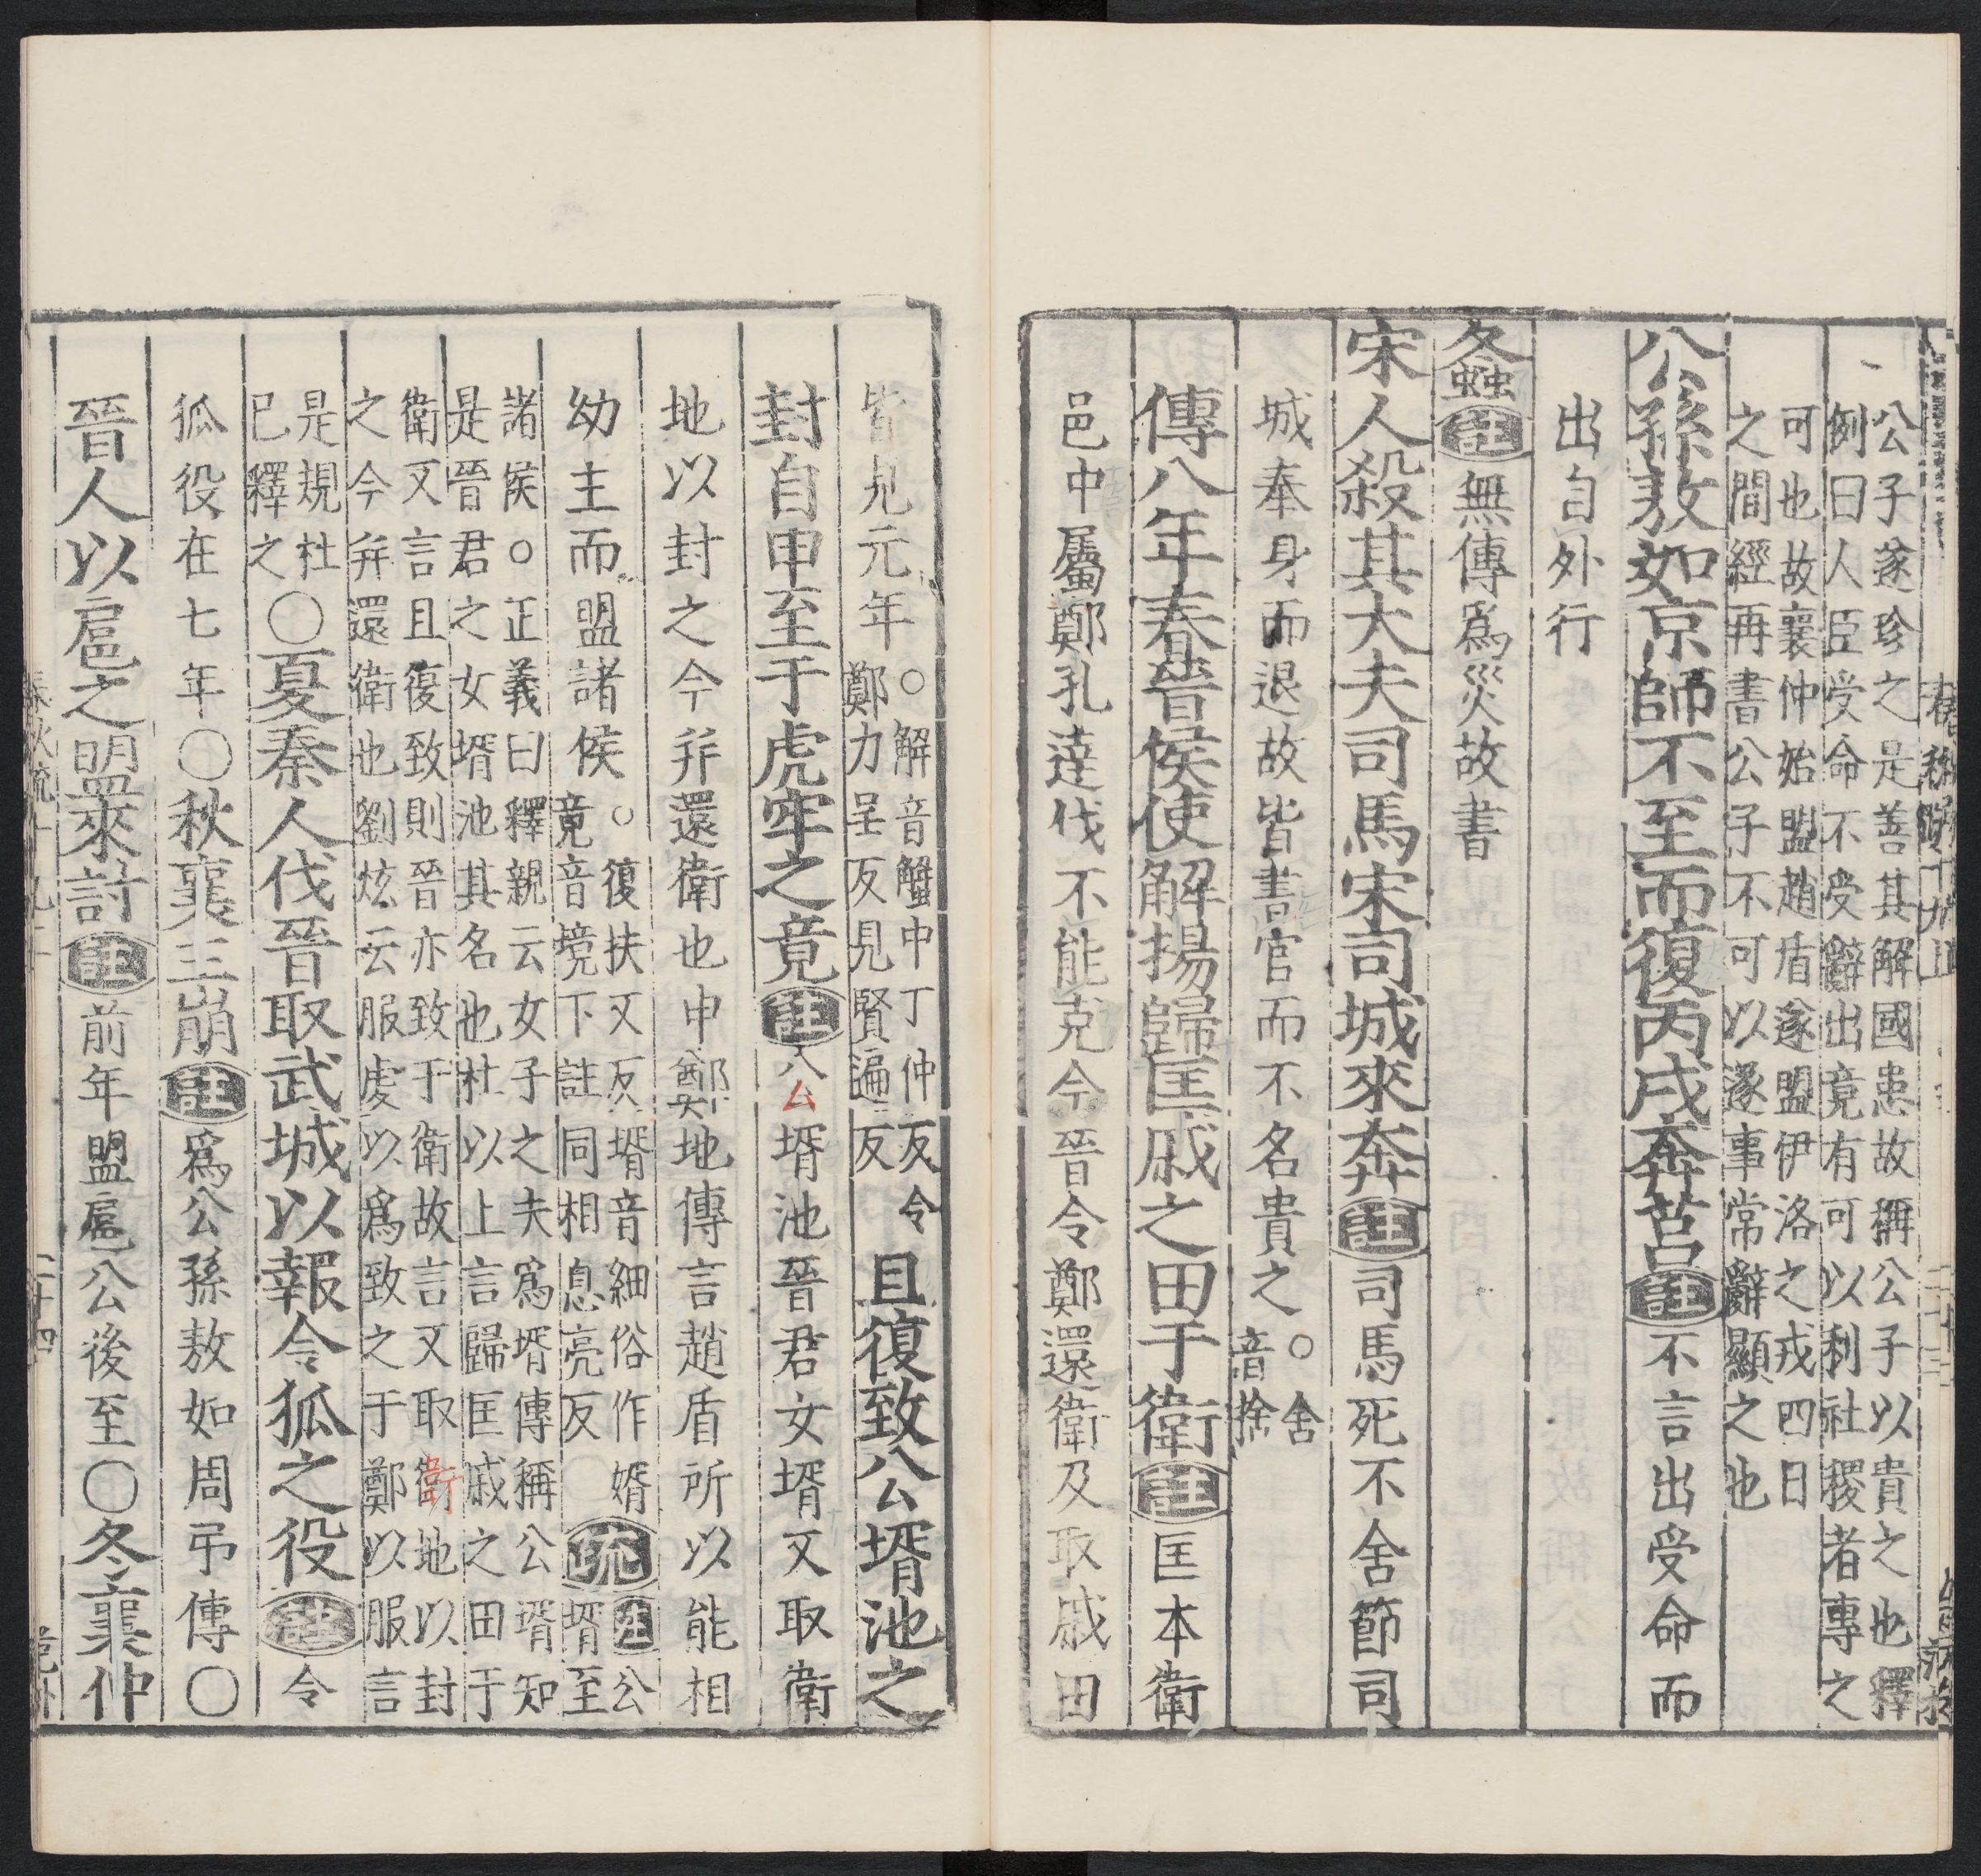 公子遂珍之是善其解國患故稱公子以貴之也釋
例曰人臣受命不受辭出竟有可以利社稷者專之
可也故襄仲始盟趙盾遂盟伊洛之戎四日
之間經再書公子不可以遂事常辭顯之也
公孫敖如京師不至而復丙戌奔莒註不言出受命而
出自外行
螽註無傳爲災故書
宋人殺其大夫司馬宋司城來奔註司馬死不舍節司
城奉身而退故皆書官而不名貴之○舍音捨
傳八年春晉侯使解揚歸匡戚之田于衛註匡本衛
邑中屬鄭孔達伐不能克今晉令鄭還衛及取戚田
皆見元年○解音蟹中丁仲反令鄭力呈反見賢遍反且復致公壻池之
封自申至于虎牢之竟註公壻池晉君女壻又取衛
地以封之今幷還衛也申鄭地傳言趙盾所以能相
幼主而盟諸侯○復扶又反壻音細俗作婿竟音境下註同相息亮反疏註公壻至
諸侯○正義曰釋親云女子子之夫爲壻傳稱公壻知
是晉君之女壻池其名也杜以上言歸匡戚之田于
衛又言且復致則晉亦致于衛故言又取衛地以封
之今幷還衛也劉炫云服虔以爲致之于鄭以服言
是規杜
已釋之○夏秦人伐晉取武城以報令狐之役註令
狐役在七年○秋襄王崩註爲公孫敖如周弔傳○
晉人以扈之盟來討註前年盟扈公後至○冬襄仲